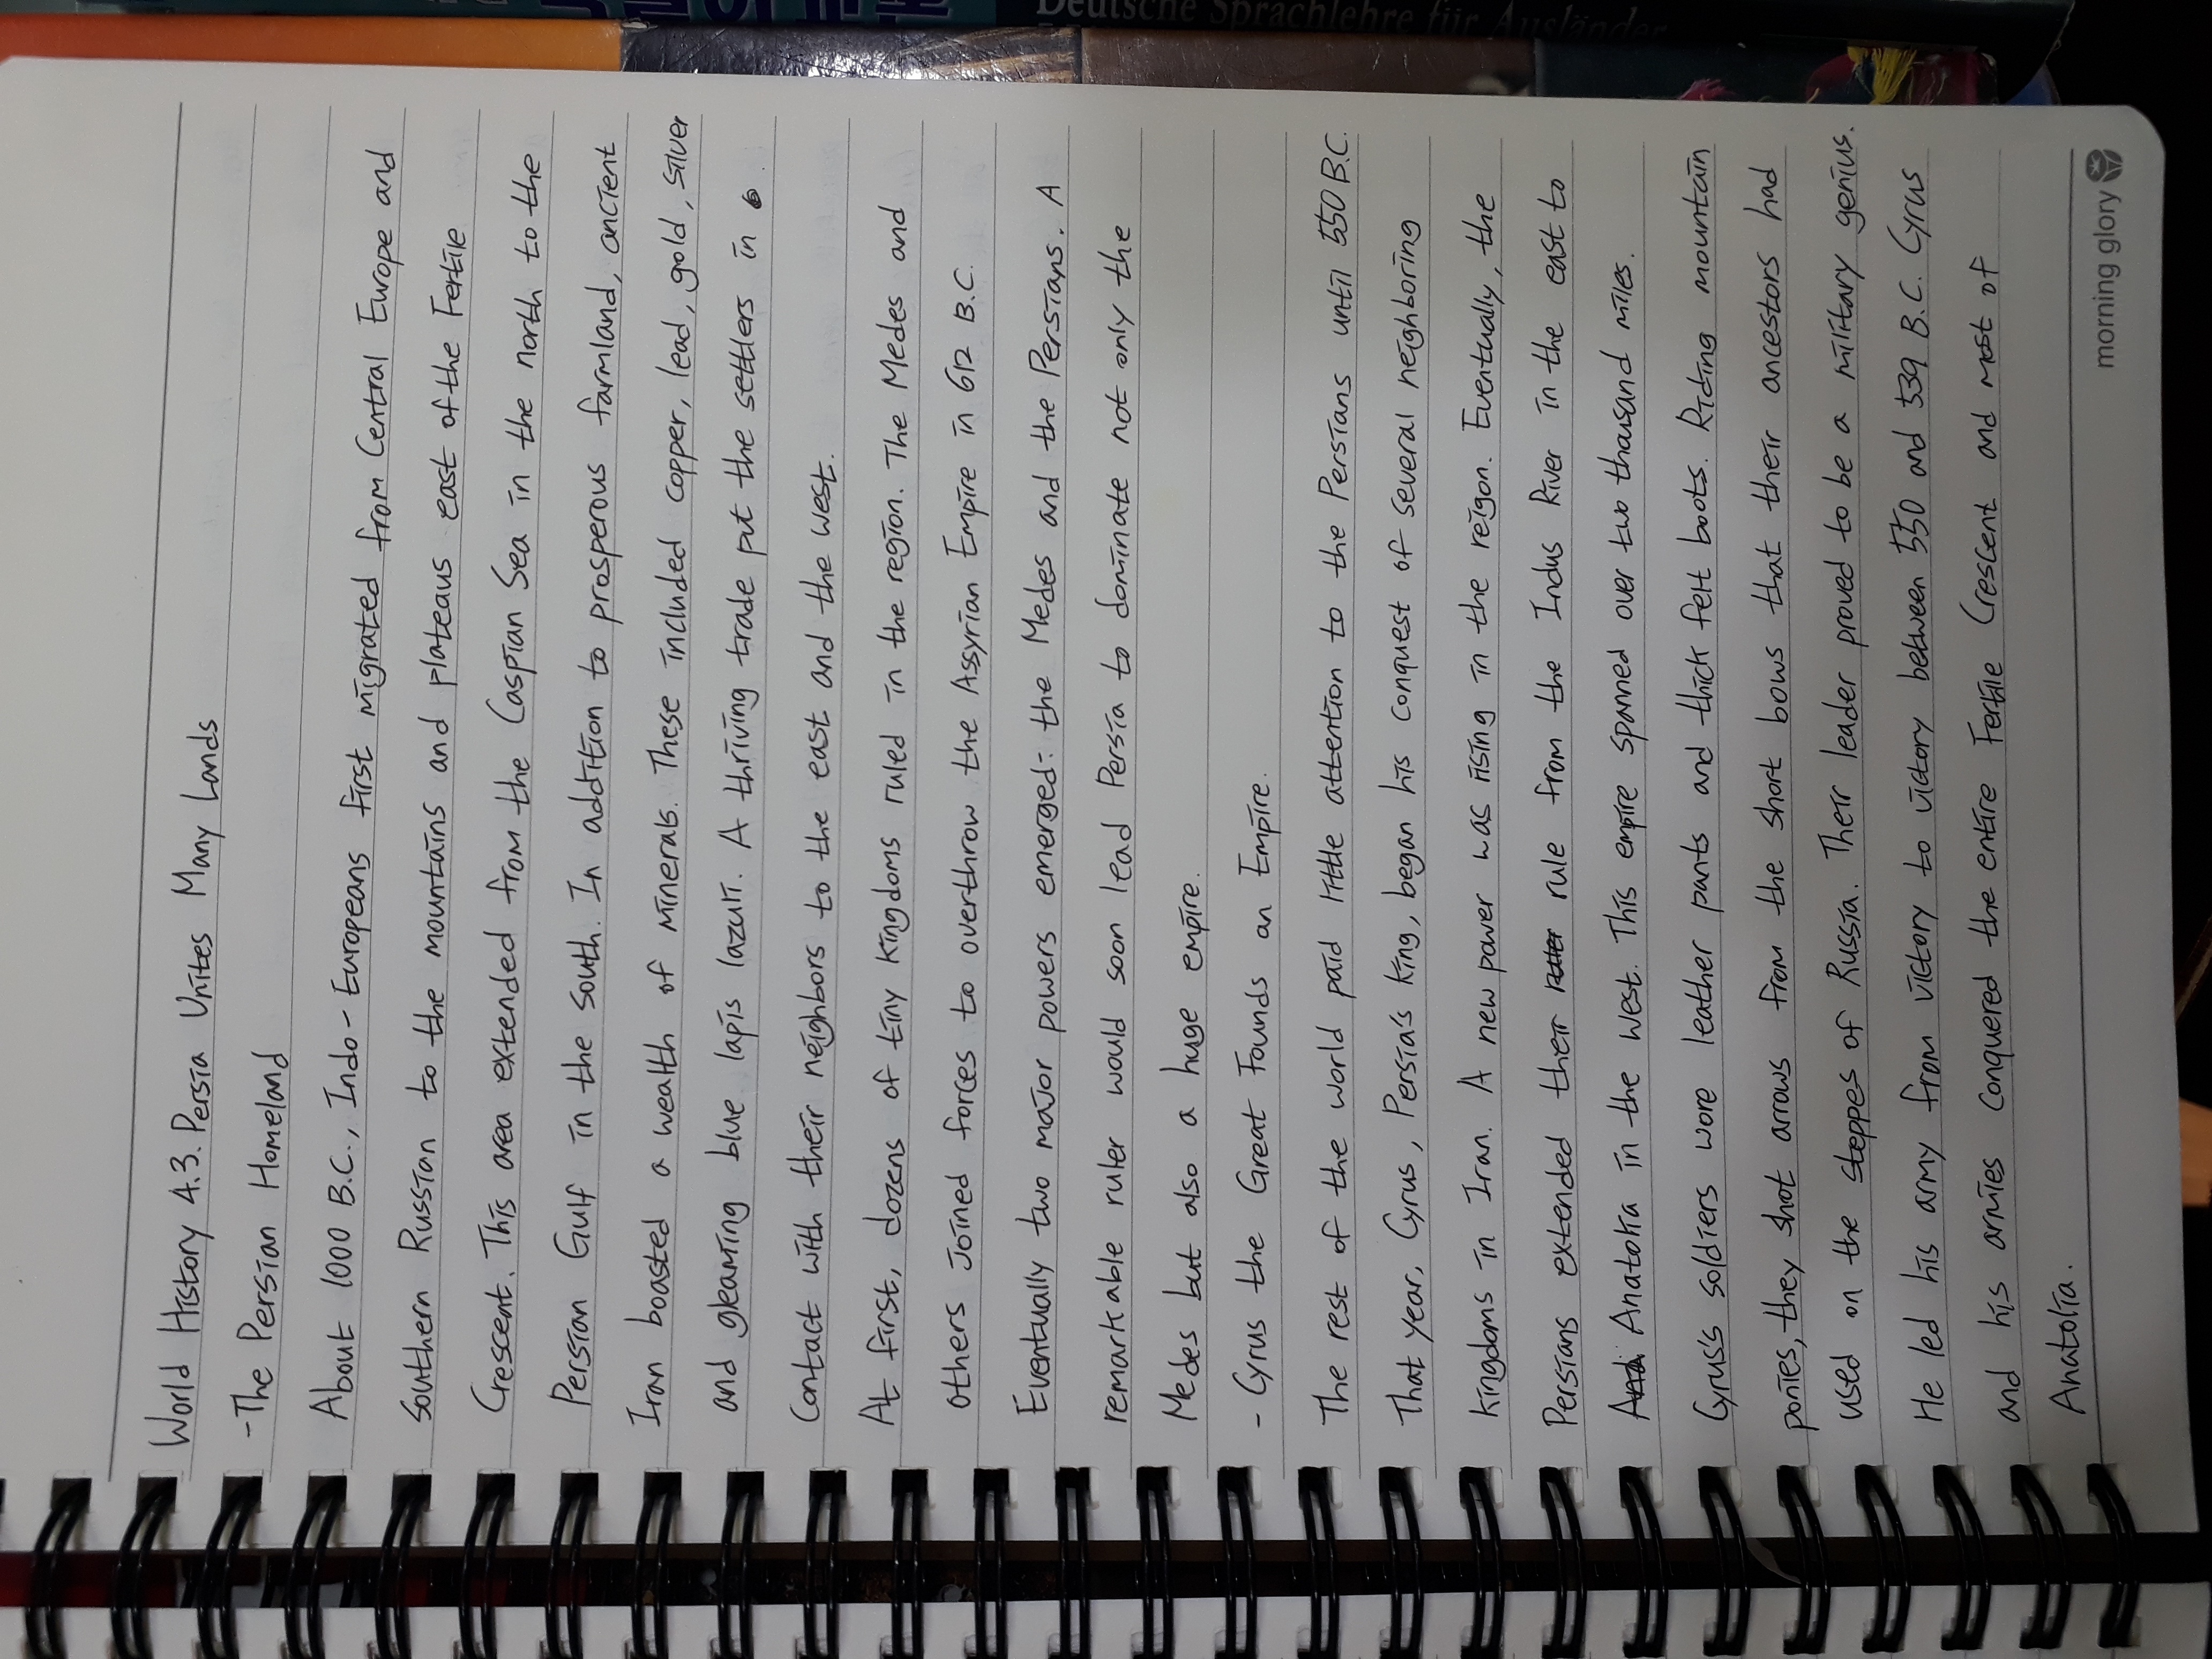 Deutsche Sprachlehre für Ausländer
World History 4.3. Persia Unites Many Lands
-The Persian Homeland
About 1000 B.C., Indo-Europeans first migrated from Central Europe and
southern Russian to the mountains and plateaus east of the Fertile
Crescent. This area extended from the Caspian Sea in the north to the
Persian Gulf in the south. In addition to prosperous farmland, ancient
Iran boasted a wealth of minerals. These included copper, lead, gold, silver
and gleaming blue lapis lazuri. A thriving trade put the settlers in
Contact with their neighbors to the east and the west.
At first, dozens of tiny kingdoms ruled in the region. The Medes and
others joined forces to overthrow the Assyrian Empire in 612 B.C.
Eventually two major powers emerged: the Medes and the Persians. A
remarkable ruler would soon lead Persia to dominate not only the
Medes but also a huge empire.
- Cyrus the Great Founds an Empire.
The rest of the world paid little attention to the Persians until 550 B.C.
That year, Cyrus, Persia's king, began his conquest of several neighboring
kingdoms in Iran. A new power was rising in the reigon. Eventually, the
Persians extended their rule from the Indus River in the east to
Anatolia in the west. This empire spanned over two thousand miles.
Cyrus's soldiers wore leather pants and thick felt boots. Riding mountain
ponies, they shot arrows from the short bows that their ancestors had
used on the steppes of Russia. Their leader proved to be a military genius.
He led his army from victory to victory between 550 and 539 B.C. Cyrus
and his armies Conquered the entire Fertile Crescent and most of
Anatolia.
morning glory